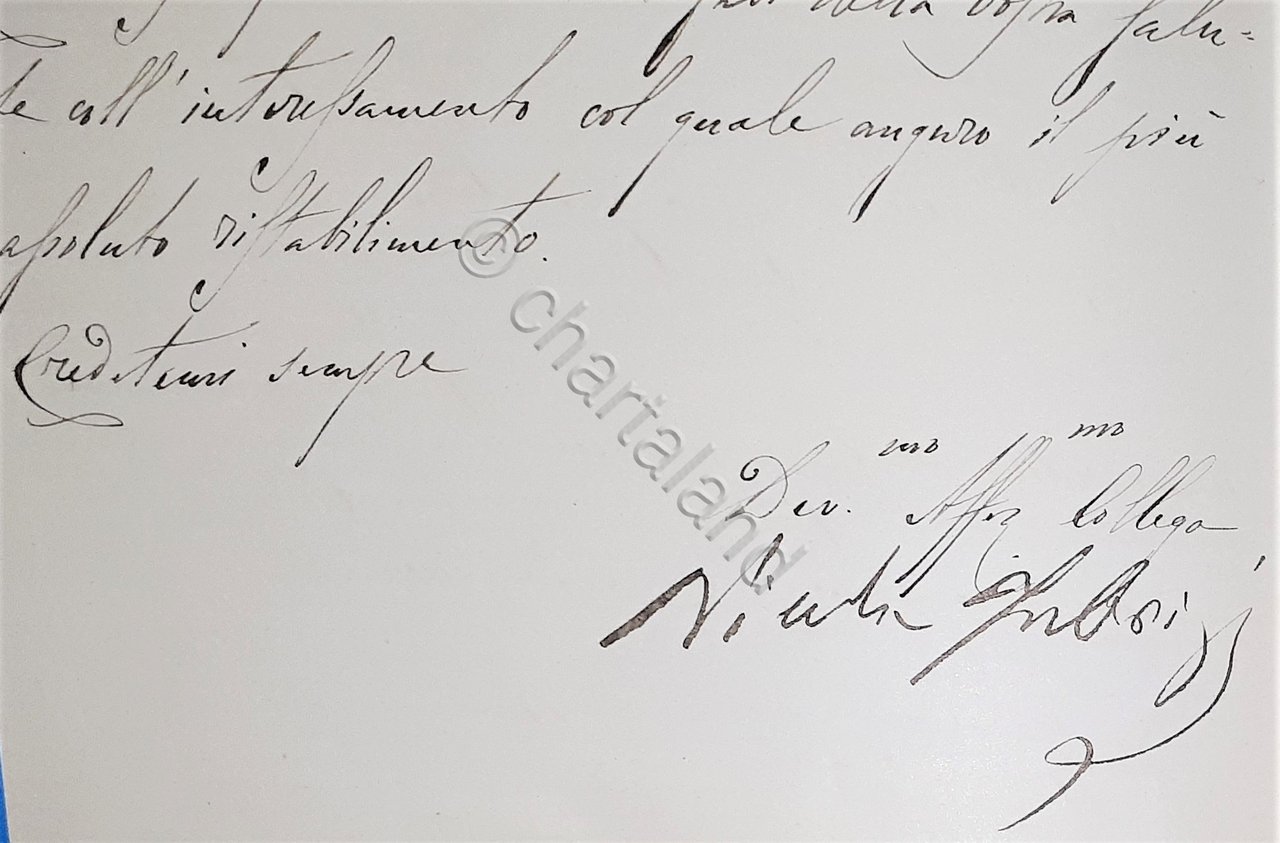 della vostra salu=
te coll'interessamento col quale auguro il più
assoluto ristabilimento.
Credetemi sempre
Dev.mo Aff.mo Collega
Nicola Fabrizj
© chartaland